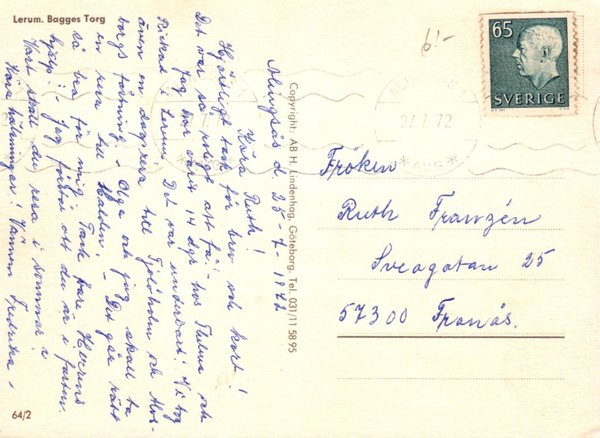 Lerum. Bagges Torg
Alingsås d 25-7-1972
Kära Ruth!
Hjärtligt tack för brev och kort!
Det var så roligt att få! - 
Jag har varit 14 dgr hos Thelma och
Rickard i Lerum. Det var underbart. Vi tog
även en dagsresa till Tjolöholm och Mos-
borgs fästning. Olga och jag skall ta
en resa till Halden. Det går rätt
så bra för mig. Tack kare Herrens
hjälp! - Jag förstår att du är i farten.
Vart skall du resa i sommar?
Kära hälsningar! Vännen Fredrika -
64/2
Copyright: AB H. Lindenhag, Göteborg. Tel. 031/11 58 95
6!-
65
SVERIGE
27.7.72
* AVG *
Fröken
Ruth Franzén
Sveagatan 25
57300 Tranås.